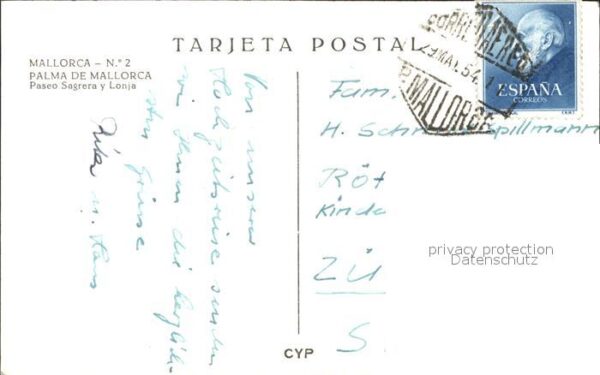 TARJETA POSTAL
MALLORCA – N.º 2
PALMA DE MALLORCA
Paseo Sagrera y Lonja
Von unserer
Hochzeitsreise senden
wir Ihnen die herzlich-
sten Grüsse
u. Hans
CORREO AEREO
29 MAY. 54
MALLORCA
ESPAÑA
CORREOS
Fam.
H. Sch Spillmann
Röt
Kinda
ZÜ
S.
privacy protection
Datenschutz
CYP